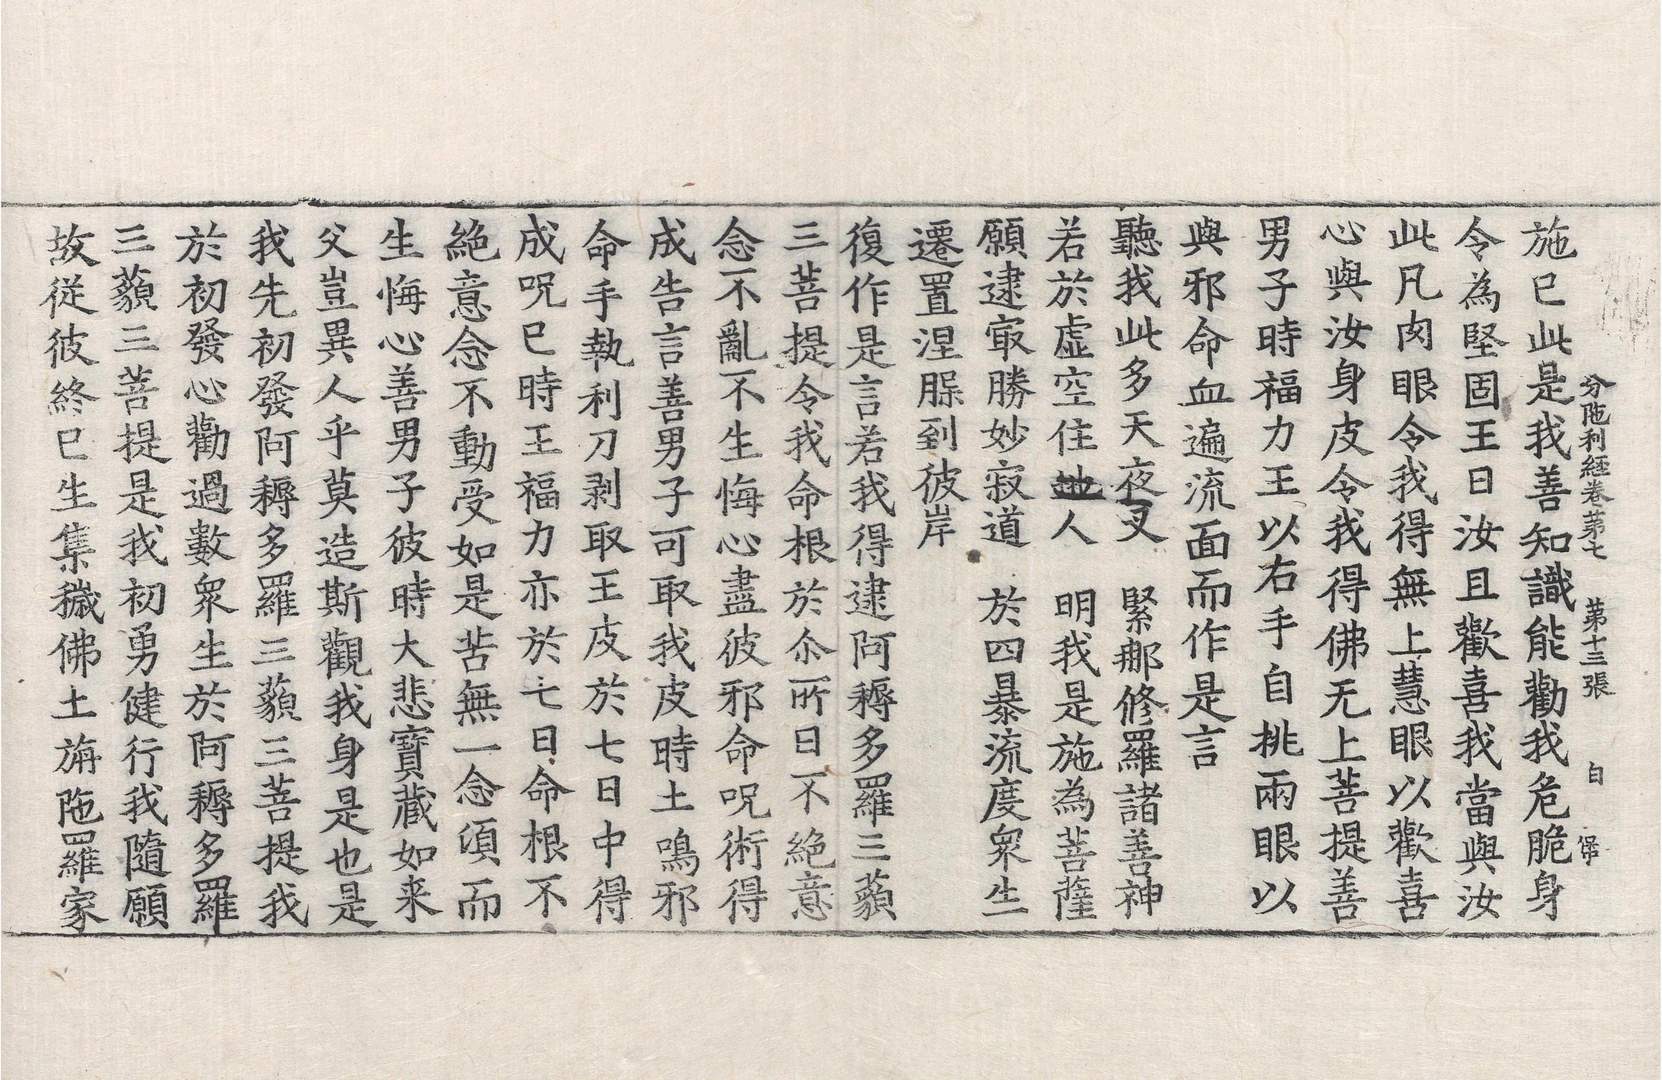 分陁利經卷第七　第十三張　白　𠏉
施已此是我善知識能勸我危脆身
令為堅固王曰汝且歡喜我當與汝
此凡肉眼令我得無上慧眼以歡喜
心與汝身皮令我得佛无上菩提善
男子時福力王以右手自挑兩眼以
與邪命血遍流面而作是言
聽我此多天夜叉　緊那修羅諸善神
若於虛空住地人　明我是施為菩薩
願逮寂勝妙寂道　於四暴流度衆生
遷置涅𣊟到彼岸
復作是言若我得逮阿耨多羅三藐
三菩提令我命根於尒所日不絕意
念不亂不生悔心盡彼邪命呪術得
成告言善男子可取我皮時土鳴邪
命手執利刀剥取王皮於七日中得
成呪已時王福力亦於七日命根不
絕意念不動受如是苦無一念頃而
生悔心善男子彼時大悲寶藏如来
父豈異人乎莫造斯觀我身是也是
我先初發阿耨多羅三藐三菩提我
於初發心勸過數衆生於阿耨多羅
三藐三菩提是我初勇健行我隨願
故從彼終已生集穢佛土旃陁羅家